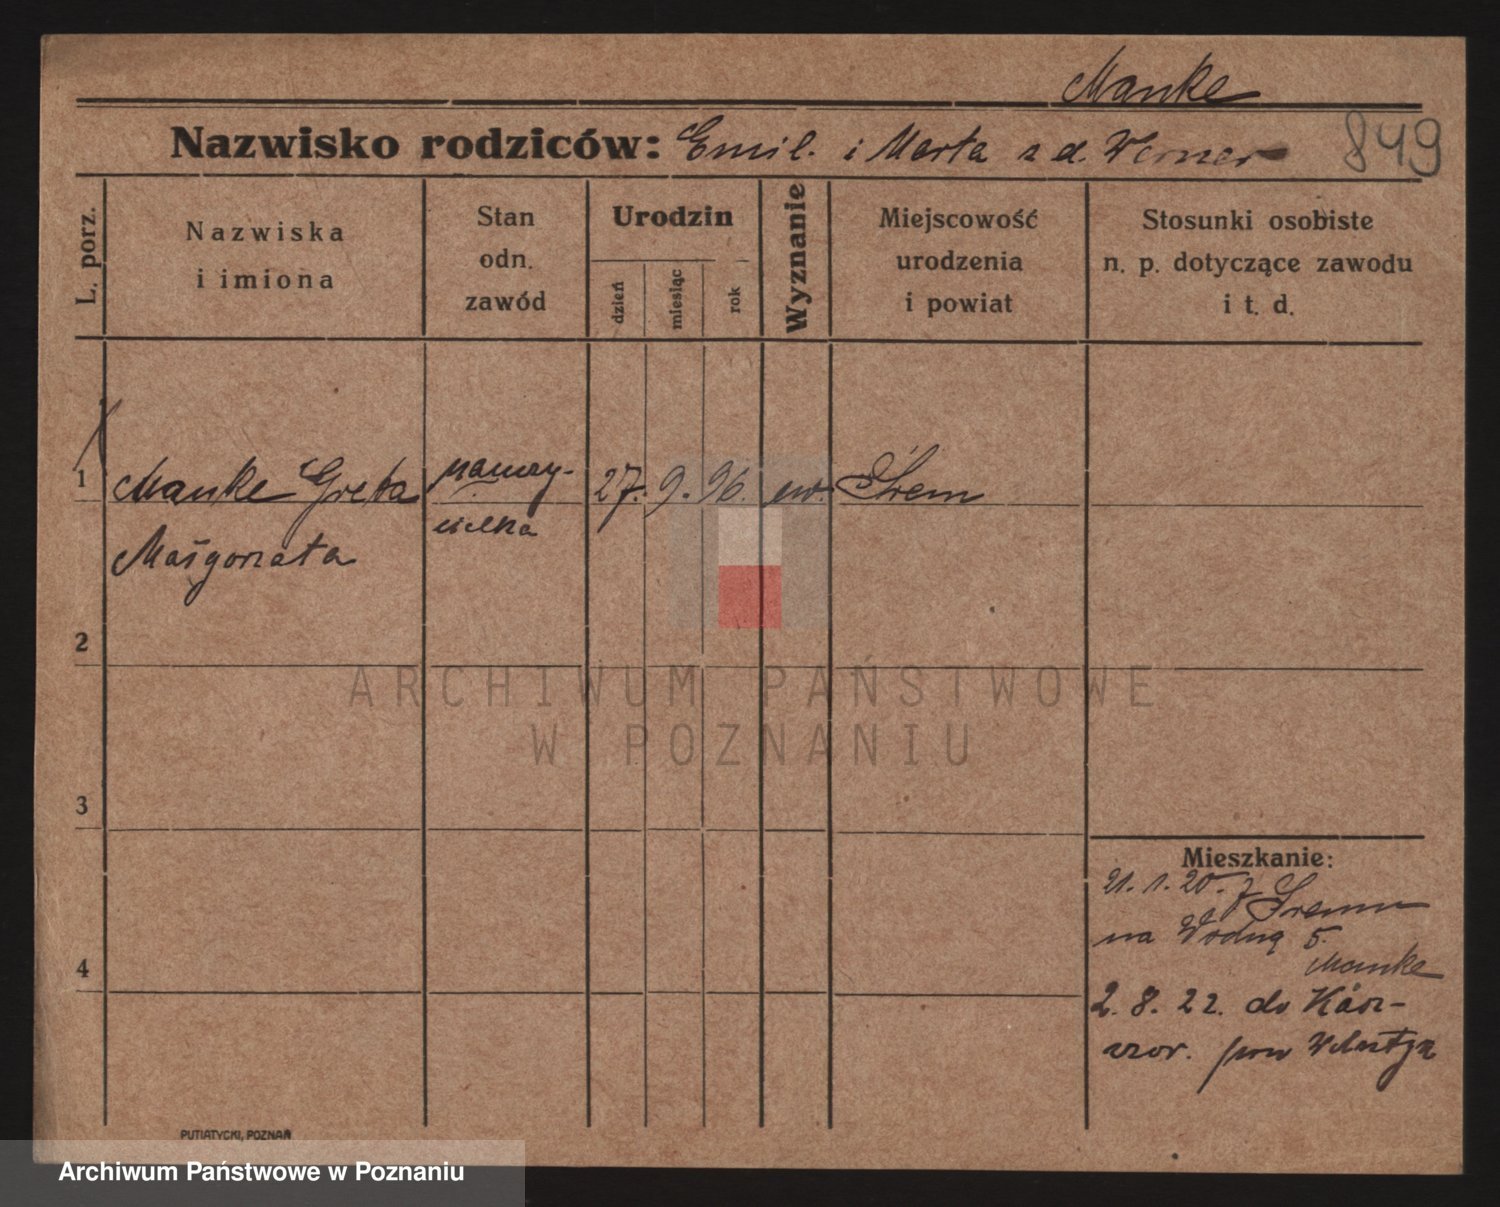 Manke
Nazwisko rodziców: Emil. i Marta z d. Werner
849
L. porz.
Nazwiska
i imiona
Stan
odn.
zawód
Urodzin
dzień
miesiąc
rok
Wyznanie
Miejscowość
urodzenia
i powiat
Stosunki osobiste
n. p. dotyczące zawodu
i t. d.
1 Manke Greta nauczy- 27. 9. 96. ew. Śrem
cielka
Małgorzata
2
ARCHIWUM PAŃSTWOWE
W POZNANIU
3
4
Mieszkanie:
21. 1. 20. z Śremu
na Wodną 5.
Manke
2. 8. 22. do
pow Wolsztyn
PUTIATYCKI, POZNAŃ
Archiwum Państwowe w Poznaniu